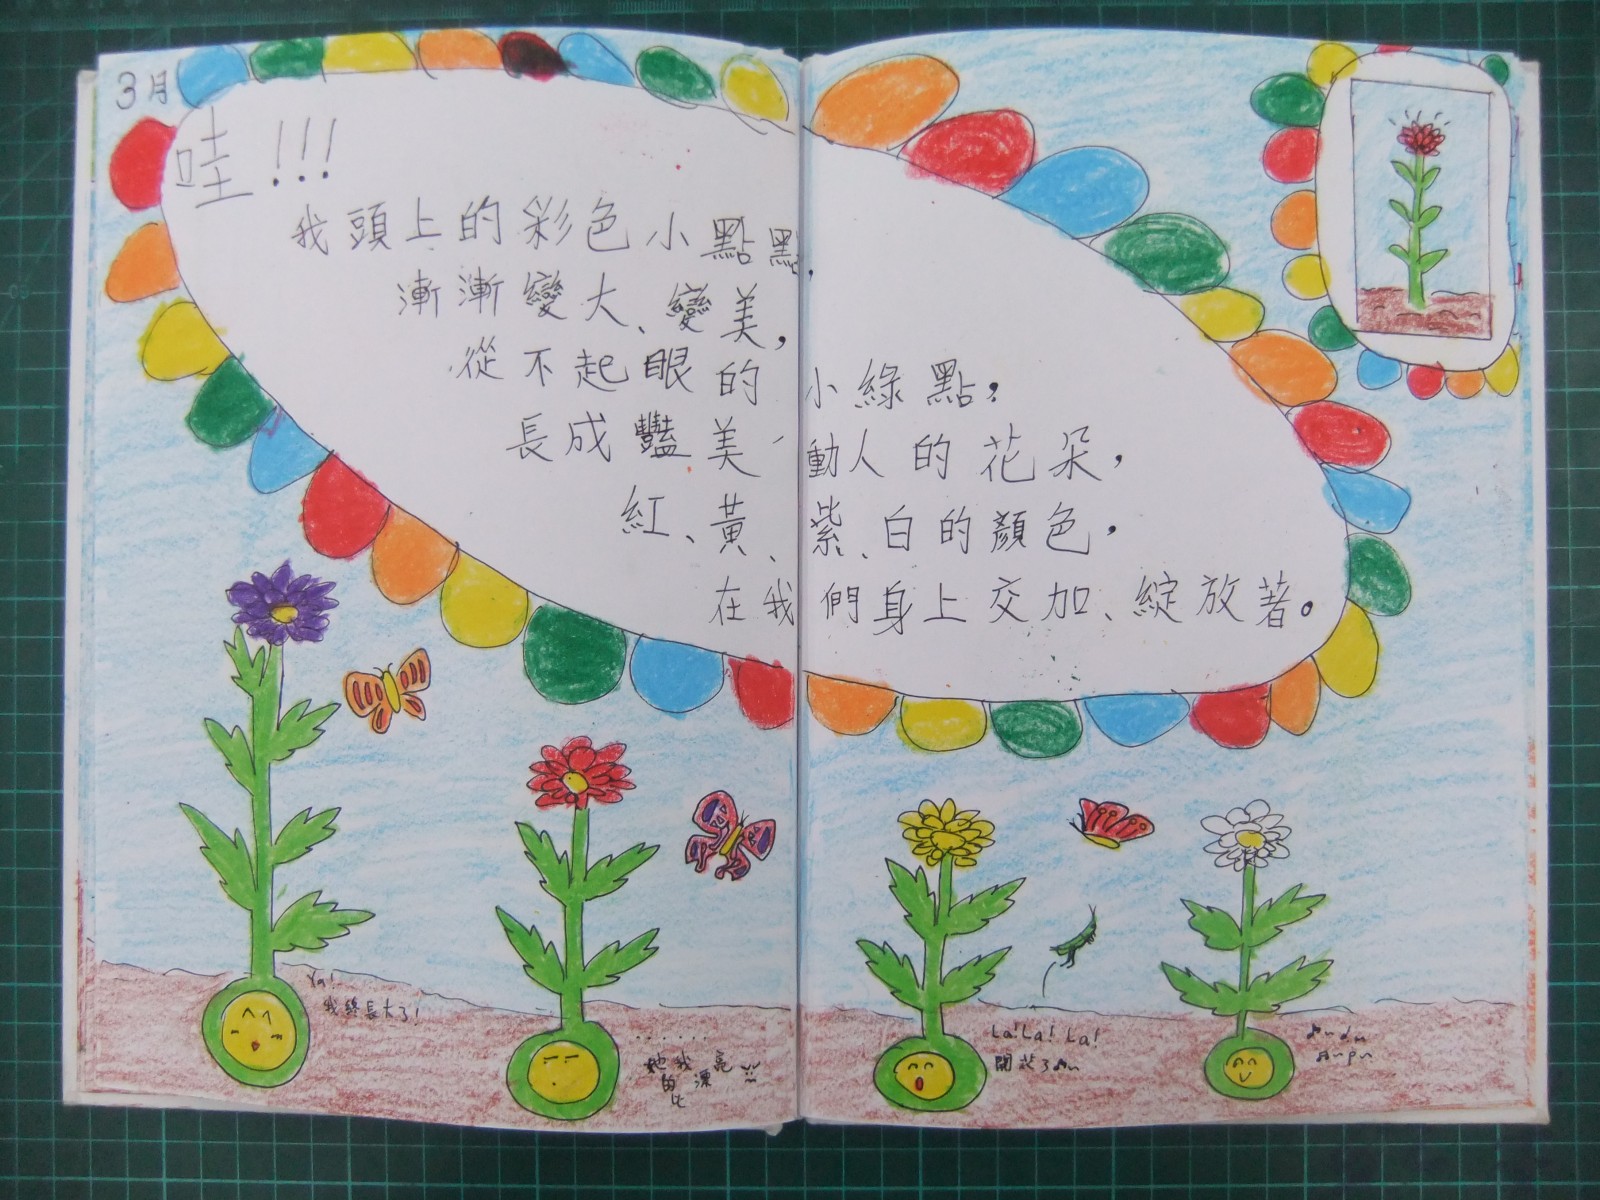 3月
哇!!!
我頭上的彩色小點點,
漸漸變大、變美,
從不起眼的小綠點,
長成豔美、動人的花朵,
紅、黃、紫、白的顏色,
在我們身上交加、綻放著。
Ya!
我終長大了!
La! La! La!
開花了